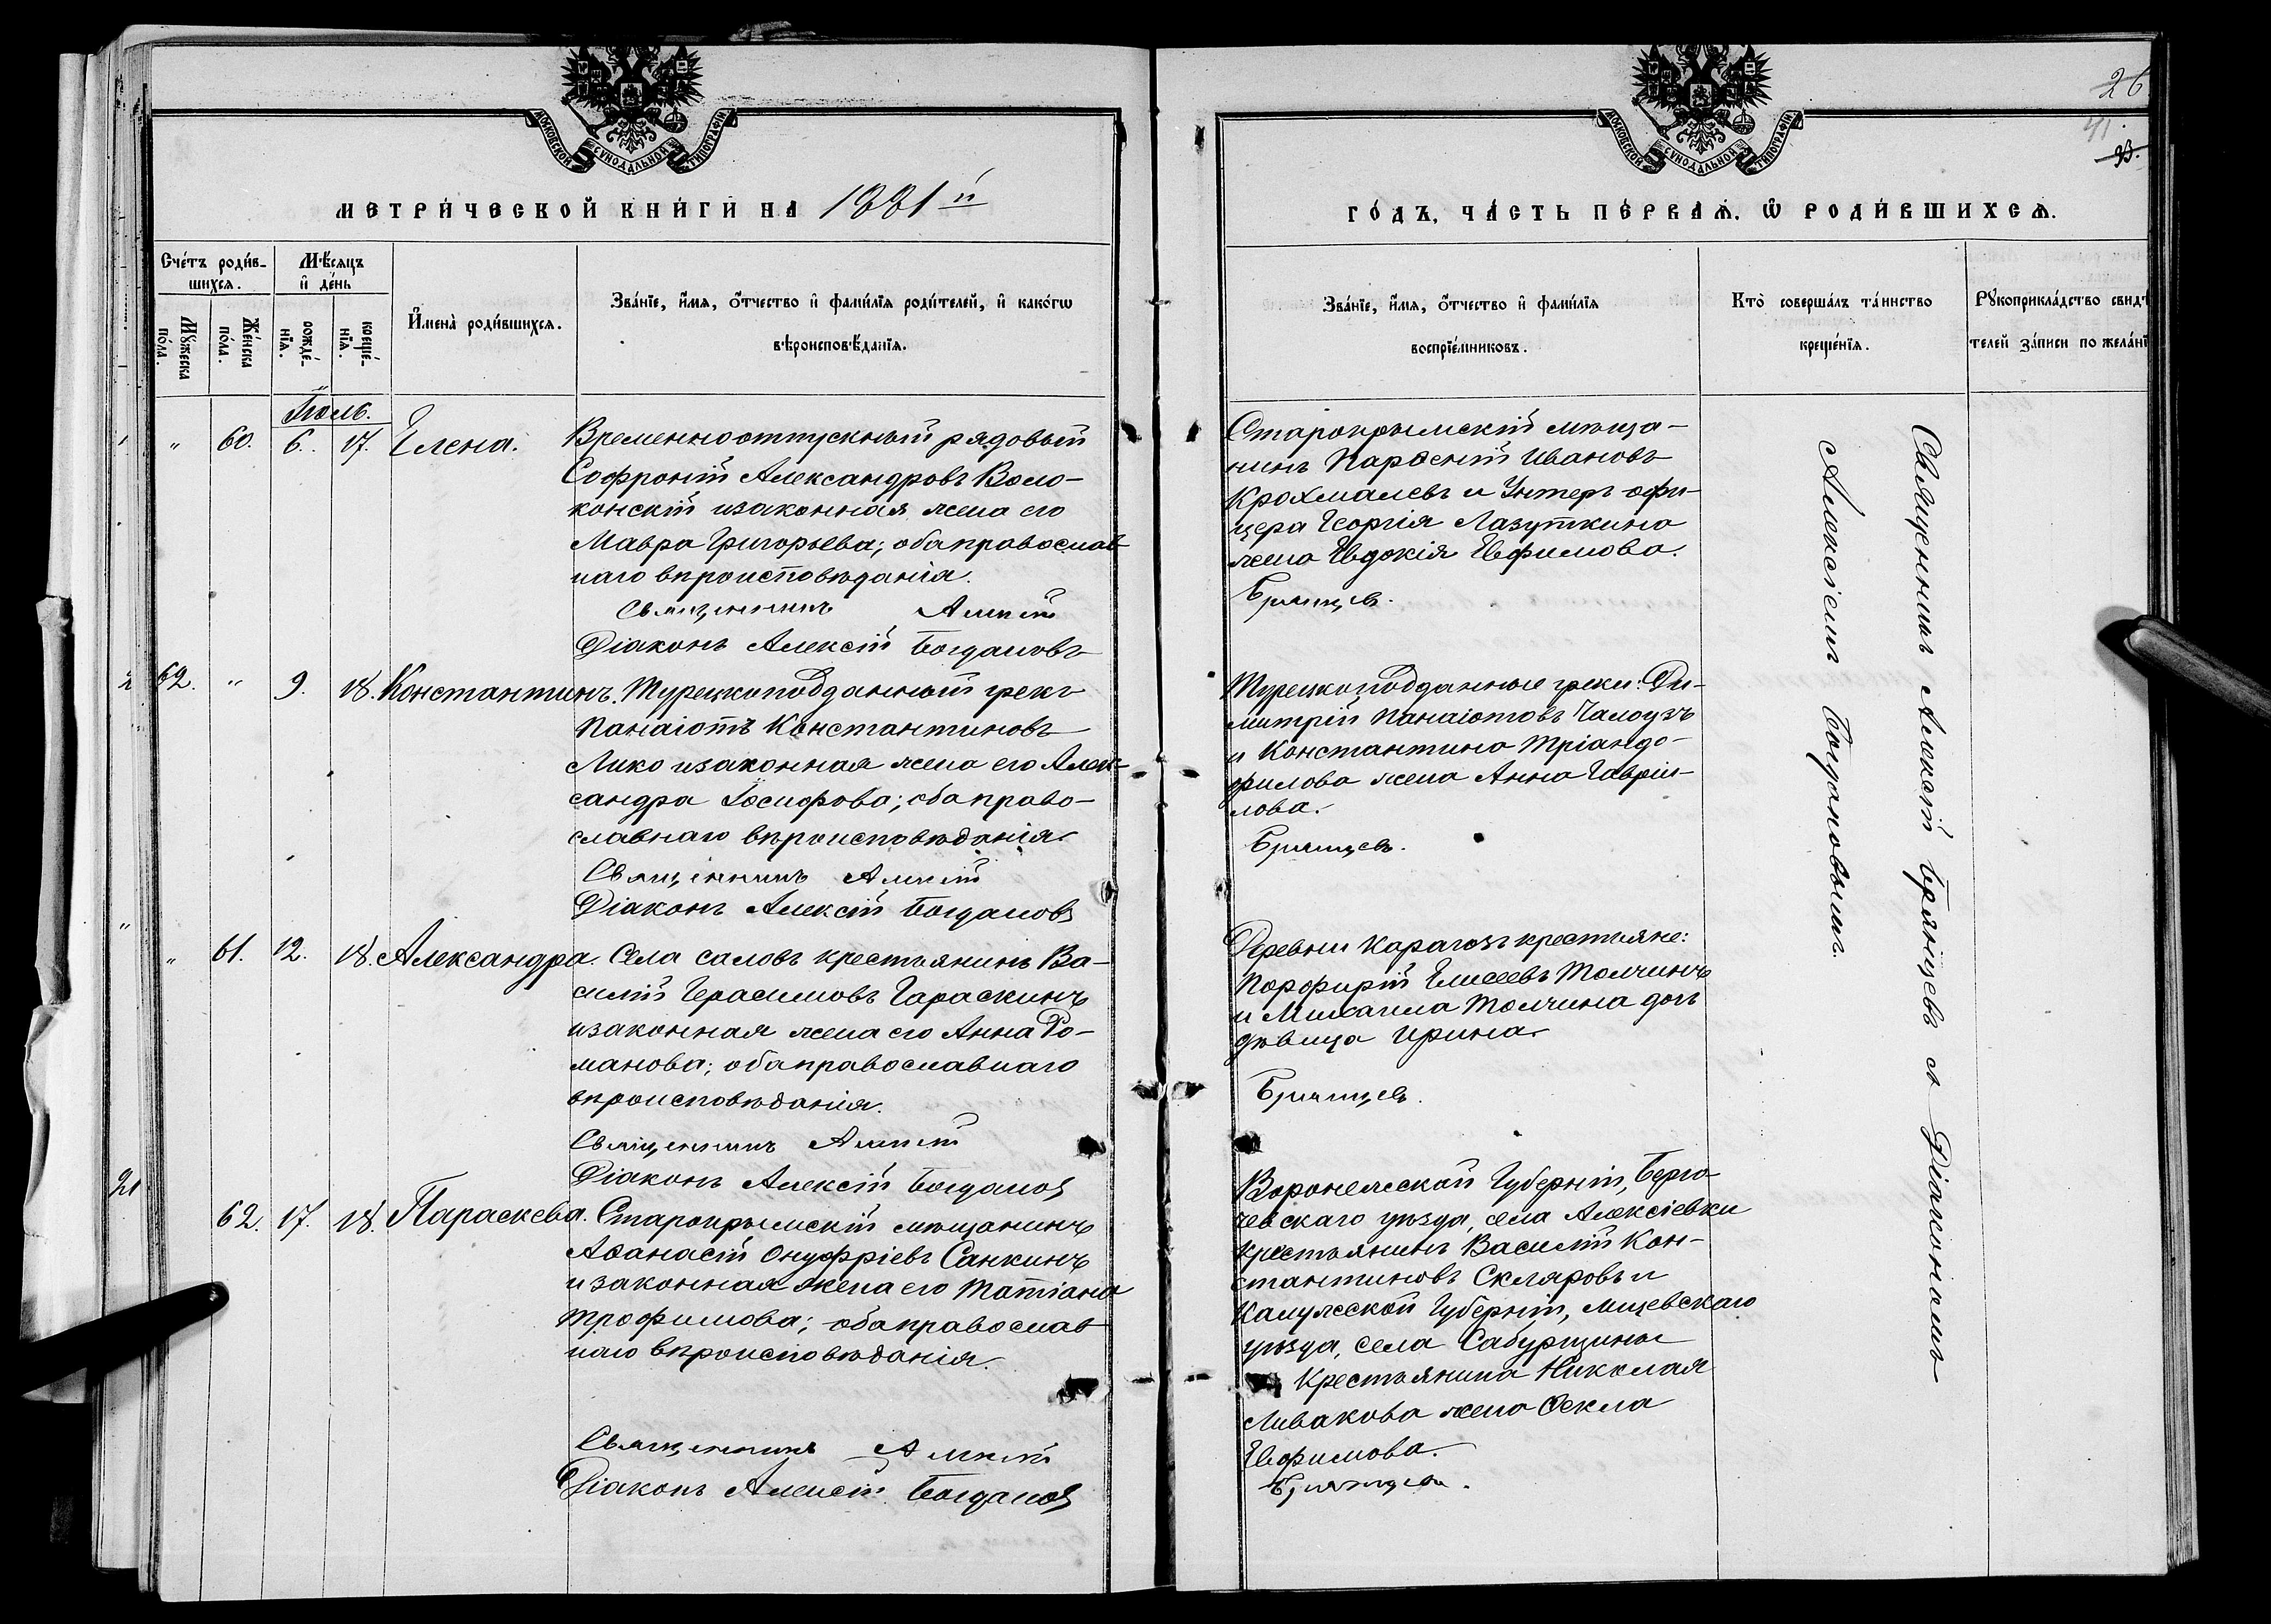 26
41.
33.
МОСКОВСКОЙ СѴНОДАЛЬНОЙ ТИПОГРАФІИ
МОСКОВСКОЙ СѴНОДАЛЬНОЙ ТИПОГРАФІИ
МЕТРИ́ЧЕСКОЙ КНИ́ГИ НА 1881й
ГО́ДЪ, ЧА́СТЬ ПЕ́РВАѦ, Ѡ РОДИ́ВШИХСѦ.
Сче́тъ роди́в-
шихся.
Мꙋ́жеска по́ла.
Же́нска по́ла.
Мѣ́сяцъ
и де́нь
рожде́-нїя.
креще́-нїя.
Имена̀ роди́вшихся.
Зва́нїе, и́мя, о́тчество и фами́лїя роди́телей, и како́гѡ
вѣроисповѣ́данїя.
Зва́нїе, и́мя, о́тчество и фами́лїя
воспрїе́мниковъ.
Кто̀ соверша́лъ та́инство
креще́нїя.
Рꙋкоприкла́дство свидѣ
телей за́писи по жела́нї
Іюль.
" 60. 6. 17. Елена.
Временноотпускный рядовый
Софроній Александровъ Воло-
конскій изаконная жена его
Мавра Григорьева; обаправослав
наго вѣроисповѣданія.
Священникъ Алексій
Діаконъ Алексій Богдановъ
Старокрымскій мѣща-
нинъ Парѳеній Ивановъ
Крохмалевъ и Унтеръ офи-
цера Георгія Лазуткина
жена Евдокія Евфимова.
Брянцевъ.
62. " 9. 18. Константинъ.
Турецкоподданный грекъ
Панаіотъ Константиновъ
Лико изаконная жена его Алек-
сандра Іосифова; оба право-
славнаго вѣроисповѣданія.
Священникъ Алексій
Діаконъ Алексій Богдановъ
Турецкоподданные греки: Ди-
митрій Панаіотовъ
и Константина Тріандо-
филова жена Анна Гаврiи-
лова.
Брянцевъ.
" 61. 12. 18. Александра.
Села саловъ крестьянинъ Ва-
силій Герасимовъ Гараскинъ
изаконная жена его Анна Ро-
манова; обаправославнаго
вѣроисповѣданія.
Священникъ Алексій
Діаконъ Алексій Богдановъ
Деревни Карагозъ крестьяне:
Порфирій Елисеевъ Толчинъ
и Михаила Толчина дочь
дѣвица Ирина.
Брянцевъ.
62. 17. 18. Параскева.
Старокрымскій мѣщанинъ
Аѳанасій Онуфріевъ Санкинъ
изаконная жена его Татіана
Трофимова; обаправослав
наго вѣроисповѣданія.
Священникъ Алексій
Діаконъ Алексій Богдановъ
Воронежской Губерніи, Бирю-
чевскаго уѣзда, села Алексіевки
крестьянинъ Василій Кон-
стантиновъ Скляровъ и
Калужской Губерніи, Мщевскаго
уѣзда, села Сабурщины
Крестьянина Николая
Ливакова жена Ѳекла
Евфимова.
Брянцевъ.
Священникъ Алексій Брянцевъ съ Діакономъ
Алексіемъ Богдановымъ.